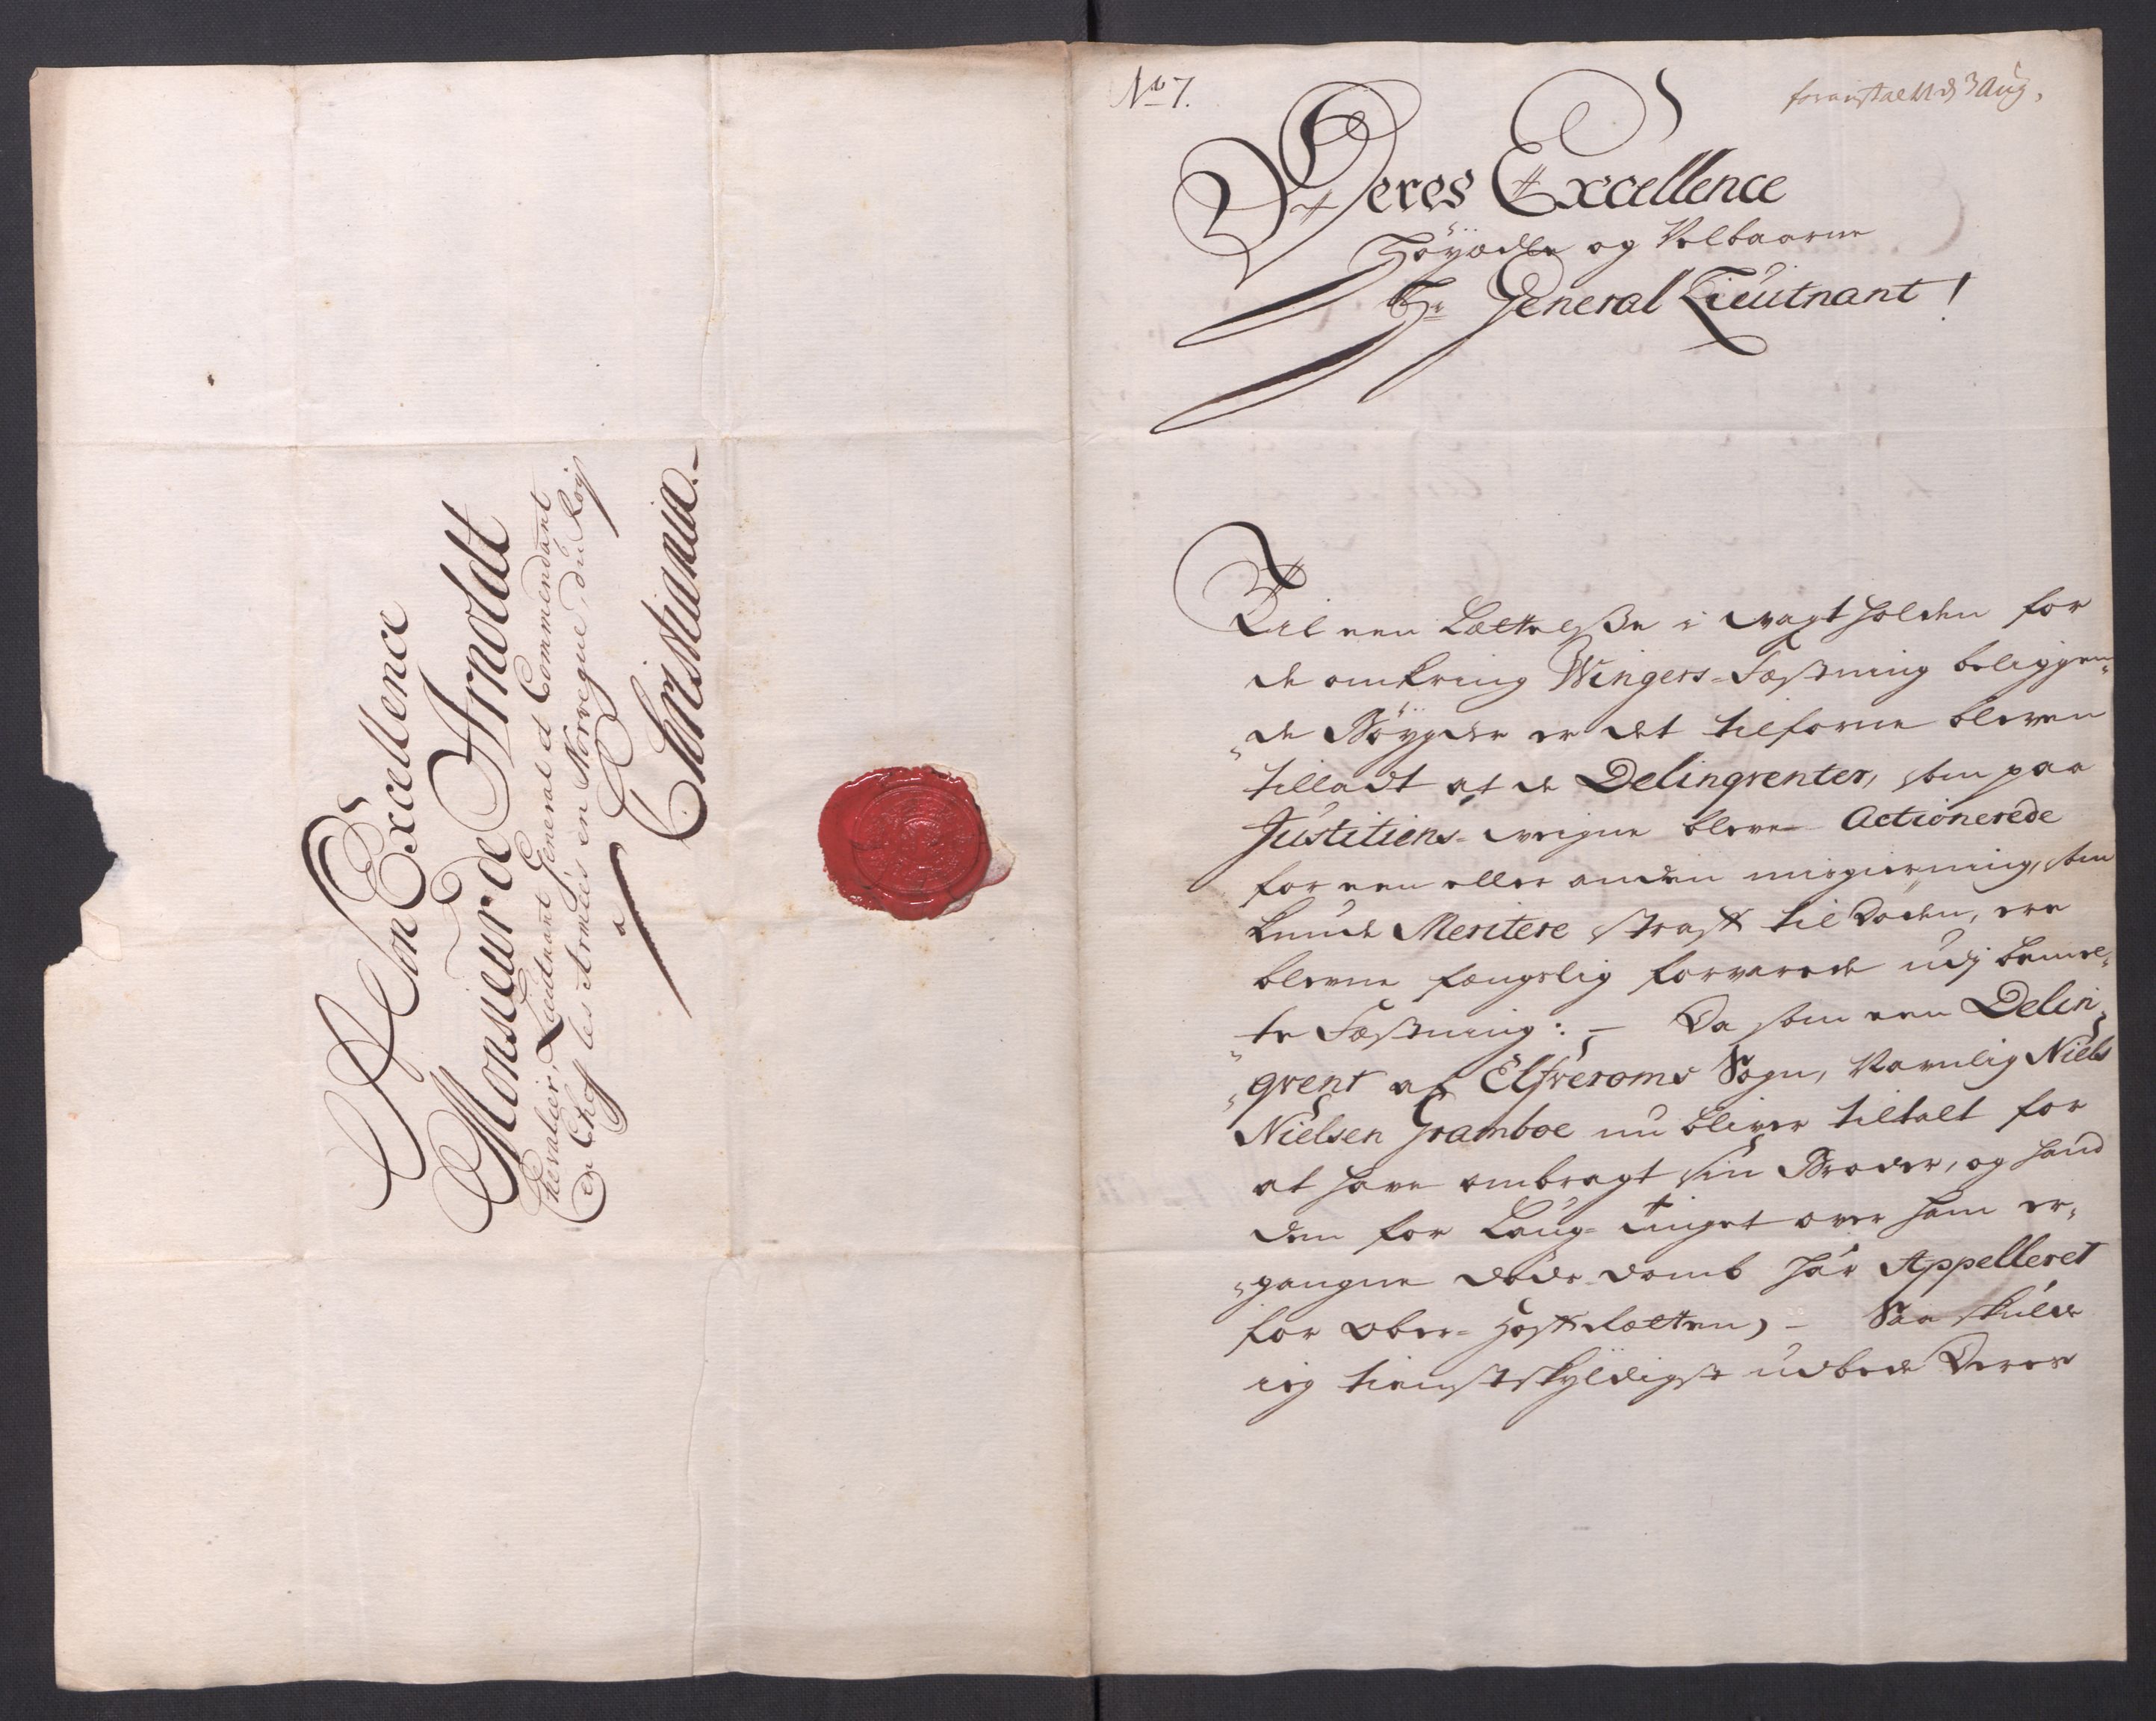 A Son Excellence
Monsieur de Arnoldt
Chevalier, Lieutnant General et Commendant
En Chef les Armées en Norvegue, du Roy
a
Christiania.
No 7.
foranstaltt d 3 Aug.
Deres Excellence
Höyædle og Velbaarne
Hr General Lieutnant!
Til een Lættelsße i vagt holden for
de omkring Wingers-Fæstning beliggen„
„de Böygder er det tilforne bleven
tilladt at de Delinqventer, som paa
Justitiens veigne bleve Actionerede
for een eller anden misgierning, som
kunde Meritere straff til Døden, ere
blevne fængslig forvarede udj bemel„
„te Fæstning: - Da som een Delin„
„qvent af Elfveroms Sogn, Navnlig Niels
Nielsen Gramboe nu bliver tiltalt for
at have ombragt sin Broder, og hand
den for Laug-tinget over ham er„
„gangne døds domb har Appelleret
for Ober-Hoff Rætten, - Saa skulde
ieg tienstskyldigst udbede Deres